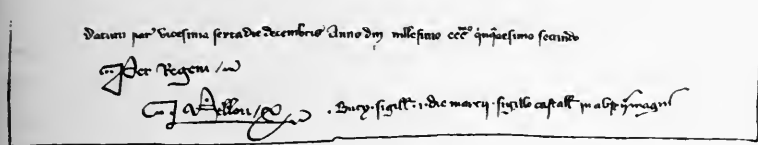 Datum par' vicesima sexta die decembris Anno dm millesimo ccc° quinquagesimo secundo
Per Regem
. Bucy . sigill : 1 . die marcij . sigillo castell in abs magni